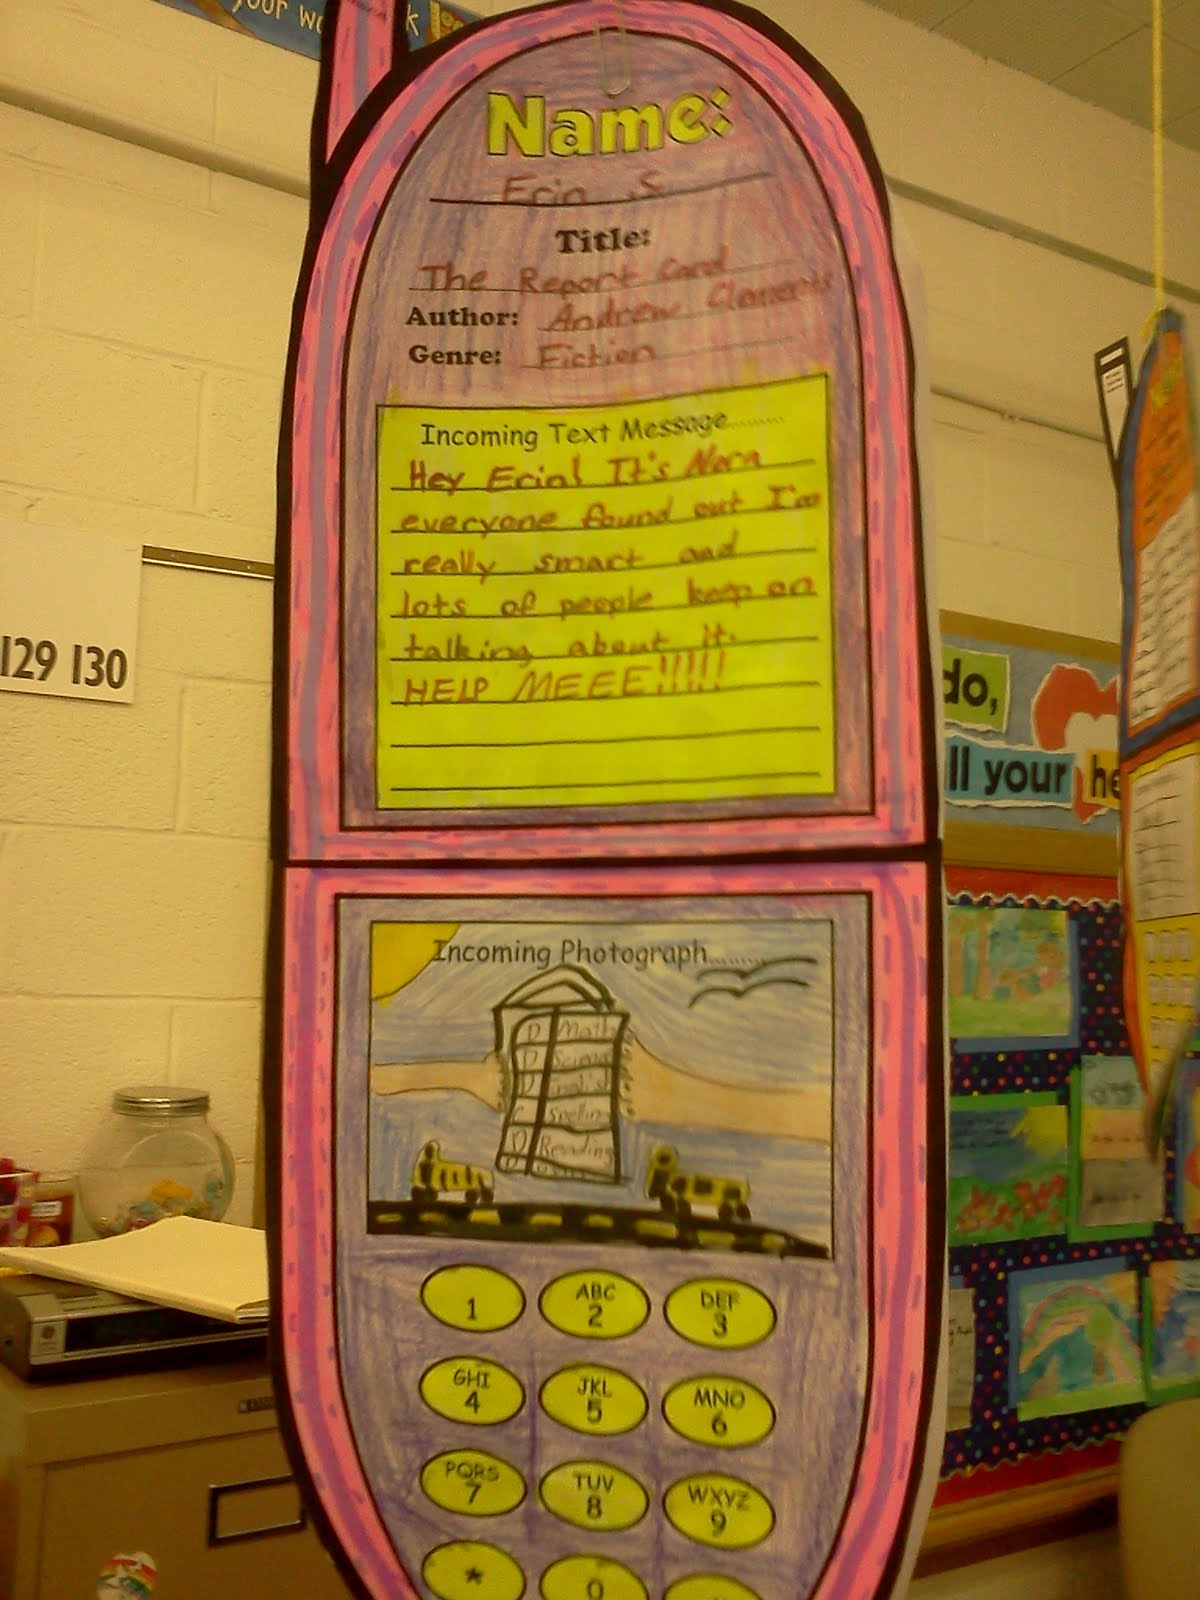 your wo k
Name:
Erin .S
Title:
The Report Card
Author: Andrew Clements
Genre: Fiction
Incoming Text Message.........
Hey Erin! It's Nora
everyone found out I'm
really smart and
lots of people keep on
talking about it.
HELP MEEE!!!!!
129 130
do,
ll your he
Incoming Photograph.........
D Math
D Science
D
C Spelling
D Reading
D
1
ABC
2
DEF
3
GHI
4
JKL
5
MNO
6
PQRS
7
TUV
8
WXYZ
9
*
0